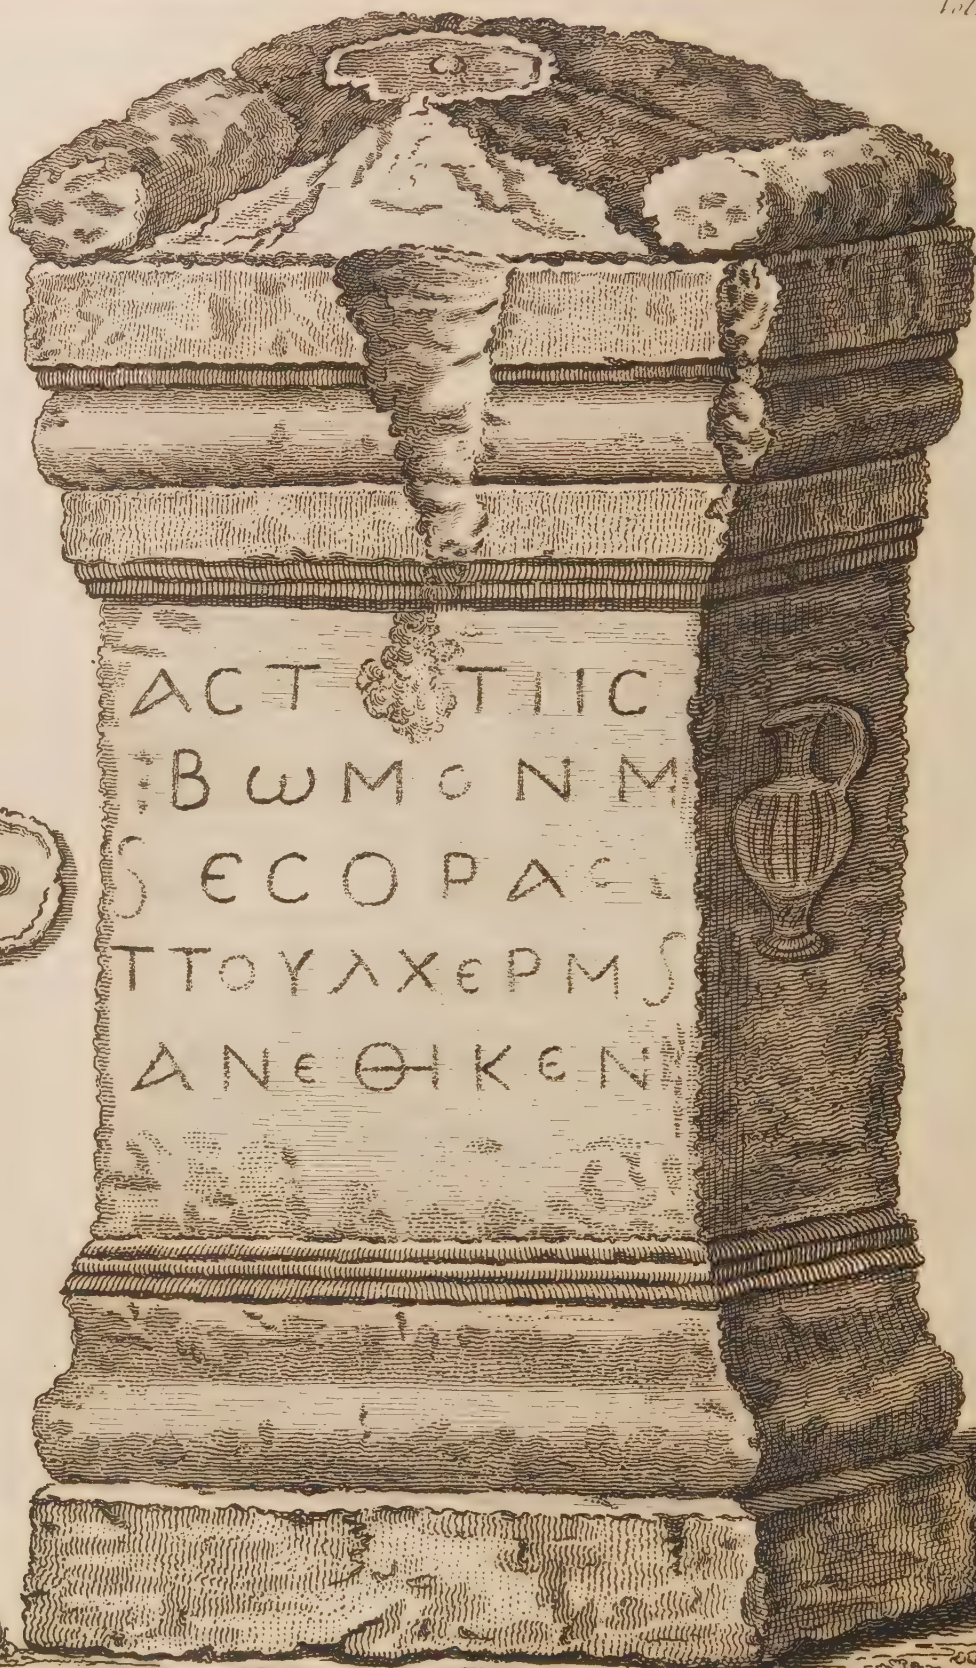 ΑϹΤ ΤΙΙϹ
ΒωΜΟΝΜ
S ЄϹΟΡΑϹ
ΤΤΟΥΛΧЄΡΜS
ΑΝЄΘΙΚЄΝ